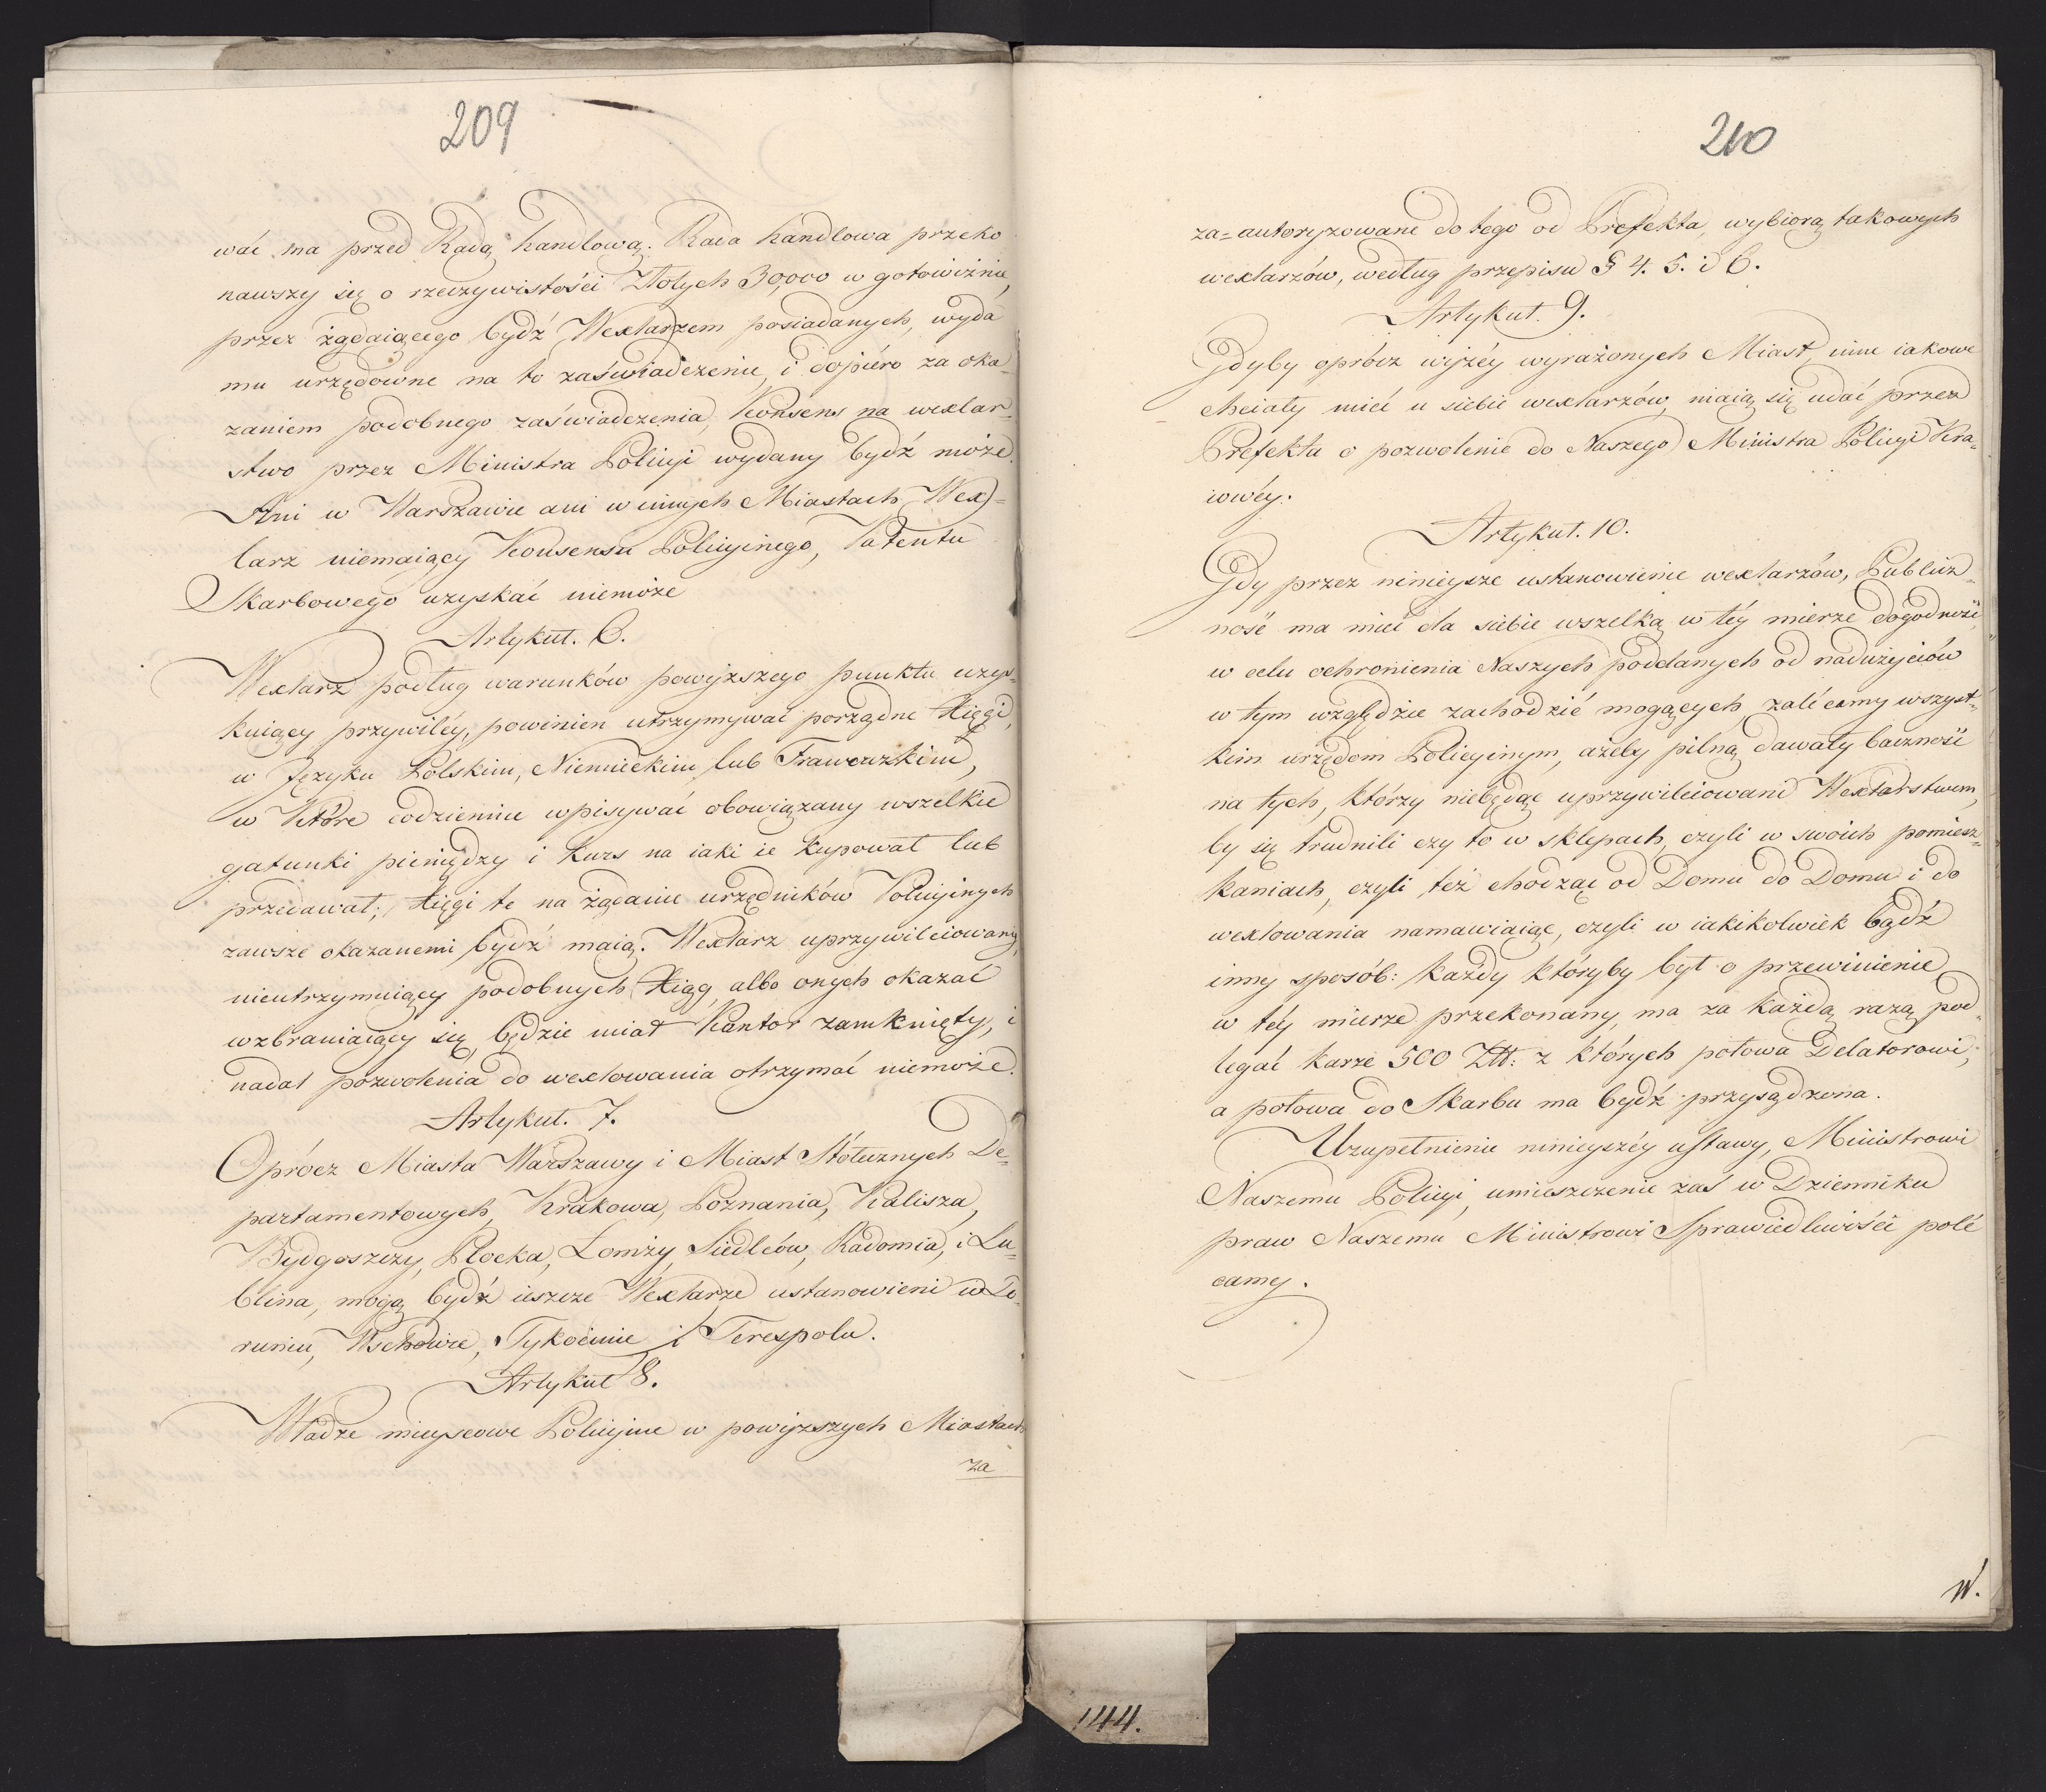 209
wać ma przed Radą handlową. Rada handlowa przeko
nawszy się o rzeczywistości Złotych 30,000 w gotowiźnie,
przez żądaiącego bydź Wexlarzem posiadanych, wyda
mu urzędowne na to zaświadczenie, i dopiéro za oka-
zaniem podobnego zaświadczenia, Konsens na wexlar-
stwo przez Ministra Policyi wydany bydź może.
Ani w Warszawie ani w innych Miastach Wex-
larz niemaiący Konsensu Policyinego, Patentu
Skarbowego uzyskać niemoże
Artykuł. 6.
Wexlarz podług warunków powyższego punktu uzys-
kuiący przywiléy, powinien utrzymywać porządne Xięgi,
w Języku Polskim, Niemieckim lub Francuzkim,
w Które codziennie wpisywać obowiązany wszelkie
gatunki pieniędzy i kurs na iaki ie kupował lub
przedawał; Xięgi te na żądanie urzędników Policyinych
zawsze okazanemi bydź maią. Wexlarz uprzywileiowany,
nieutrzymuiący podobnych Xiąg, albo onych okazać
wzbraniaiący się, będzie miał Kantor zamknięty, i
nadal pozwolenia do wexlowania otrzymać niemoże.
Artykuł. 7.
Oprócz Miasta Warszawy i Miast Stołecznych De-
partamentowych, Krakowa, Poznania, Kalisza,
Bydgoszczy, Płocka, Łomży, Siedlców, Radomia, i Lu-
blina, mogą bydź ieszcze Wexlarze ustanowieni w To-
runiu, Wschowie, Tykocinie i Terespolu.
Artykuł 8.
Władze mieyscowe Policyine w powyższych Miastach
za
210
za=autoryzowane do tego od Prefekta, wybiorą takowych
wexlarzów, według przepisu § 4. 5. i 6.
Artykuł. 9.
Gdyby oprócz wyżéy wyrażonych Miast, inne iakowe
chciały mieć u siebie wexlarzów, maią się udać przez
Prefekta o pozwolenie do Naszego Ministra Policyi Kra-
iowéy.
Artykuł. 10.
Gdy przez ninieysze ustanowienie wexlarzów, Publicz-
ność ma mieć dla siebie wszelką w téy mierze dogodność,
w celu ochronienia Naszych poddanych od nadużyciów
w tym względzie zachodzić mogących, zalécamy wszyst-
kim urzędom Policyinym, ażeby pilną dawały baczność
na tych, którzy niebędąc uprzywileiowani Wexlarstwem,
by się trudnili czy to w sklepach, czyli w swoich pomiesz-
kaniach, czyli też chodząc od Domu do Domu i do
wexlowania namawiaiąc, czyli w iakikolwiek bądź
inny sposób: każdy któryby był o przewinienie
w téy mierze przekonany, ma za każdą razą pod-
legać karze 500 Złł: z których połowa Delatorowi,
a połowa do Skarbu ma bydź przysądzona.
Uzupełnienie ninieyszéy ustawy, Ministrowi
Naszemu Policyi, umieszczenie zaś w Dzienniku
praw Naszemu Ministrowi Sprawiedliwości polé
camy.
W.
144.